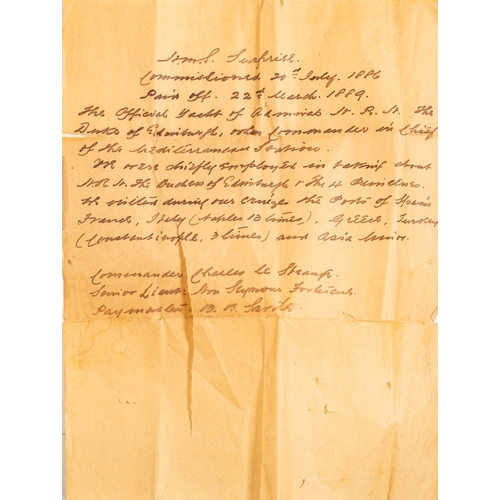 H.M.S. Surprise.
Commissioned 20th July. 1886
Paid off. 22nd March. 1889.
The Official Yacht of Admiral H. R. H. The
Duke of Edinburgh, when Commander in Chief
of the Mediterranean Station.
We were chiefly employed in taking about
H.R.H. The Duchess of Edinburgh & The 4 Princesses.
We visited during our cruize the Ports of Spain
France, Italy (Naples 13 times). Greece, Turkey
(Constantinople, 3 times) and Asia Minor.
Commander Charles Le Strange.
Senior Lieut: Hon Seymour Fortescue
Paymaster: B. B.